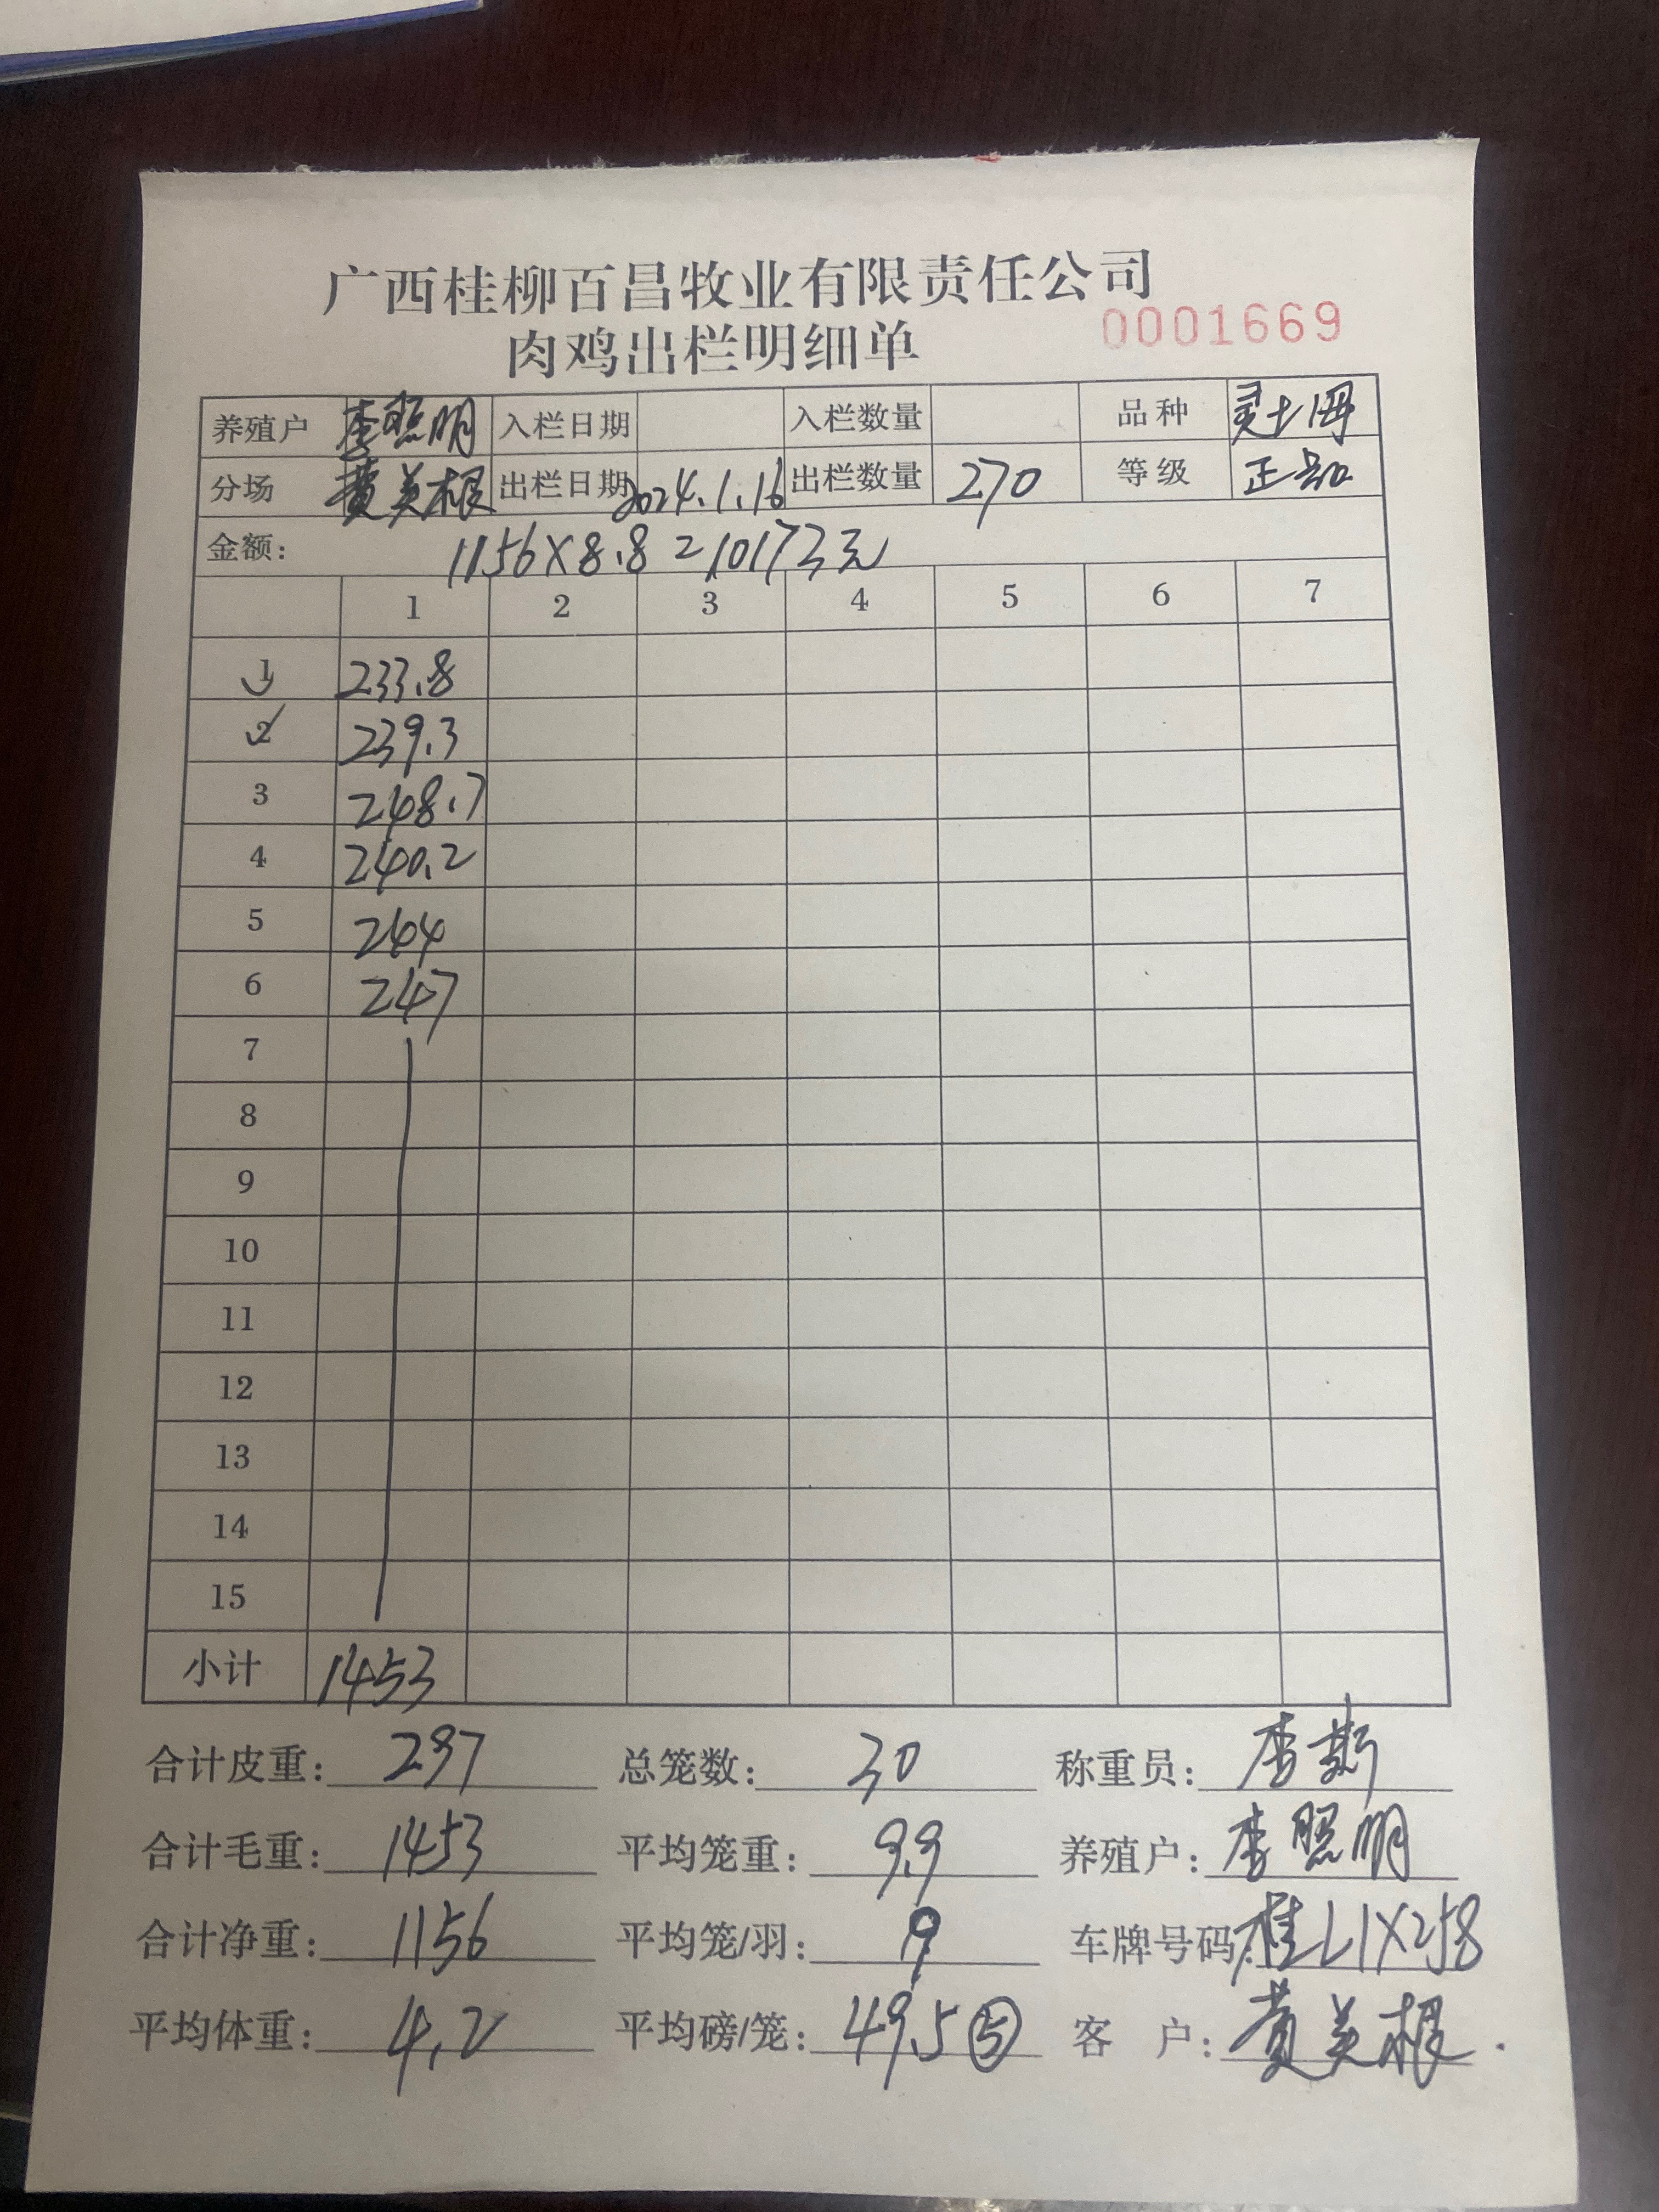 广西桂柳百昌牧业有限责任公司
肉鸡出栏明细单 0001669
养殖户 李照明 入栏日期 入栏数量 品种 灵土母
分场 黄美根 出栏日期 2024.1.16 出栏数量 270 等级 正品
金额： 1156×8.8=10173元
1 2 3 4 5 6 7
1 233.8
2 239.3
3 248.7
4 240.2
5 244
6 247
7
8
9
10
11
12
13
14
15
小计 1453
合计皮重： 297 总笼数： 30 称重员： 李
合计毛重： 1453 平均笼重： 9.9 养殖户： 李照明
合计净重： 1156 平均笼/羽： 9 车牌号码： 桂L1X258
平均体重： 4.2 平均磅/笼： 49.5⑤ 客 户： 黄美根.